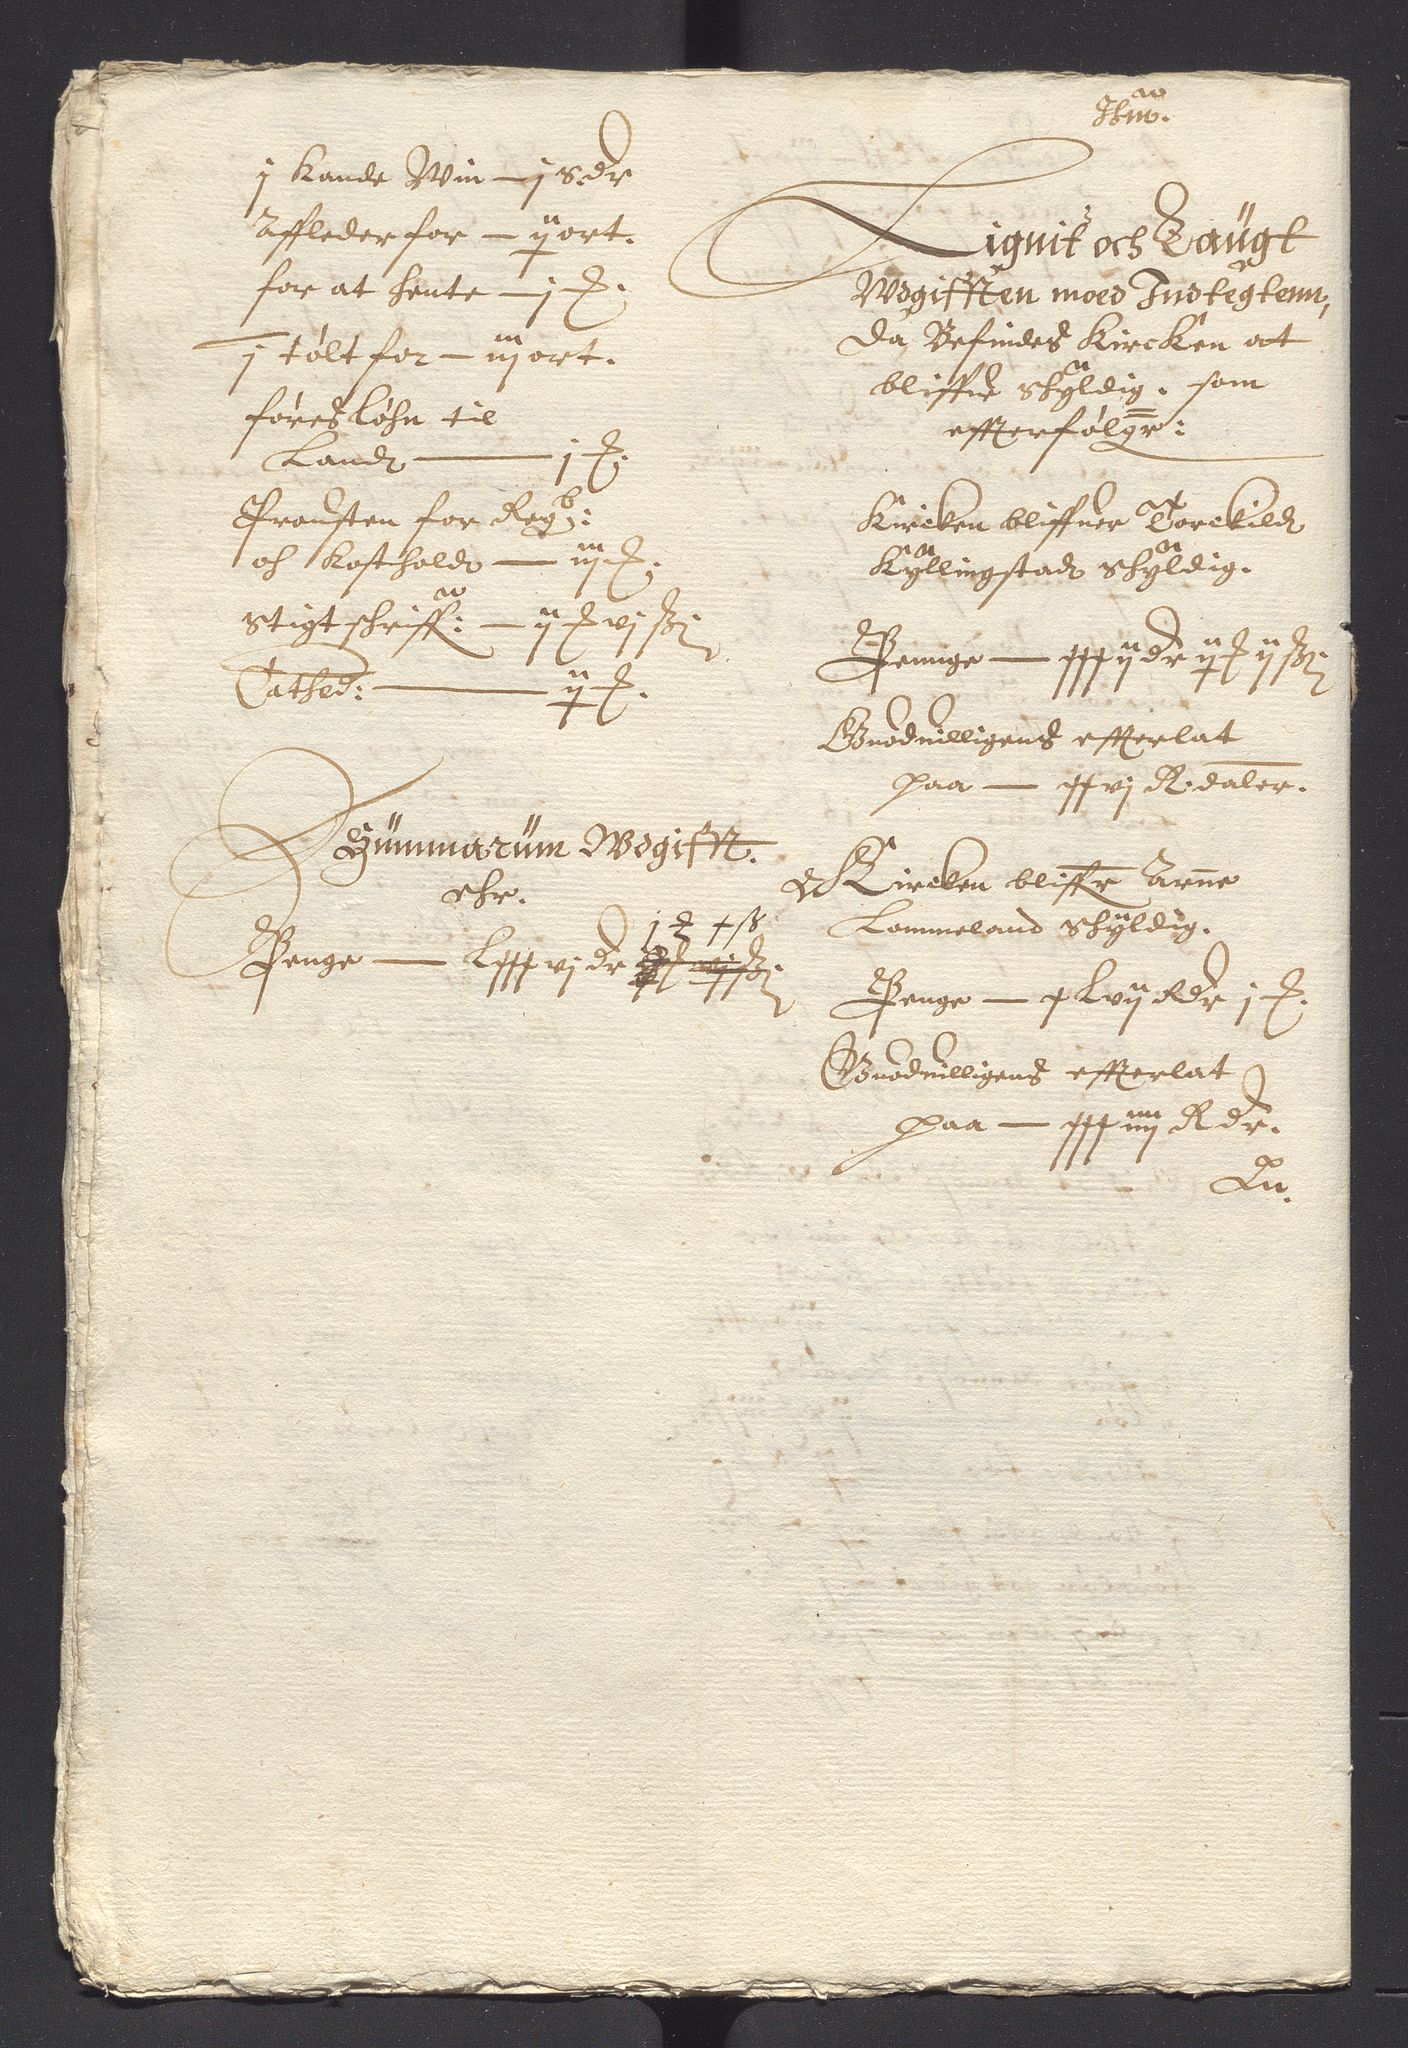 j Kande Win — j sdr
Affleder for — ij ort.
for at hente — j
j tølt for — iij ort.
føres løhn til
Lands — j
Prousten for Reg:
och kosthold — iij
Stigt schriff: — ij vj ß
Cathed: — ij
Summarum Wdgifft.
ehr.
Penge — Lxxxvj dr
j xß
Lignit och Laugt
Wdgifften moed Indtegtenn,
da Befindes Kircken at
bliffue schyldig. som
effterfølgr:
Kircken bliffuer Torckild
Kyllingstad schyldig.
Penge — xxxij dr ij ij ß
Guodvilligens effterlat
paa — xxvj R. daler.
Kircken bliffr Arne
Lommeland schyldig.
Penge — x Lvij Rdr j
Guodvilligens effterlat
paa — xxxiiij R dr.